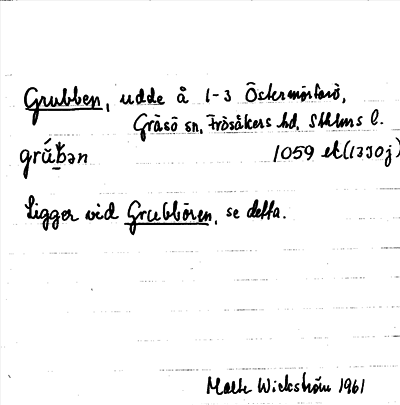 Grubben, udde å 1-3 Östermörtarö,
Gräsö sn, Frösåkers hd, Sthlms l.
grúḇən 1059 et (1330j)
Ligger vid Grubbören, se detta.
Malte Wickström 1961